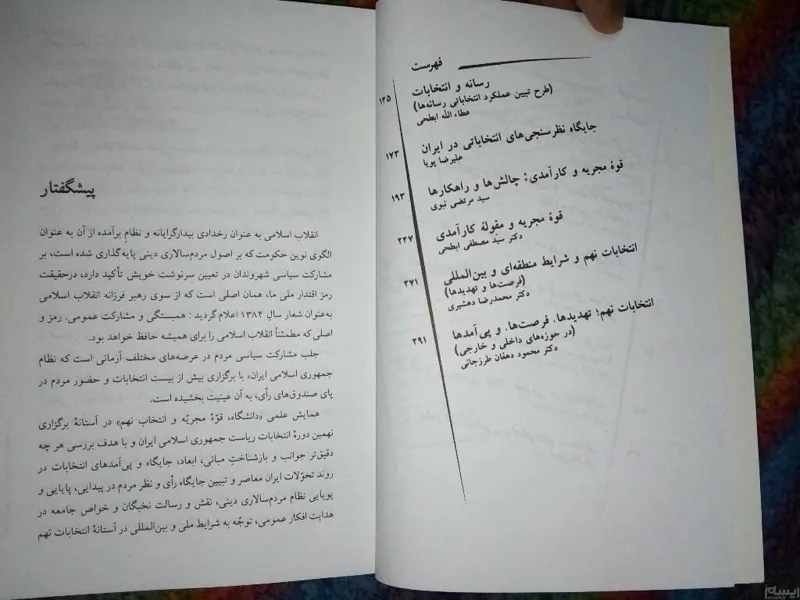 فهرست
رسانه و انتخابات
(طرح تبیین عملکرد انتخاباتی رسانه‌ها)
عطاءالله ابطحی
۱۳۵
جایگاه نظرسنجی‌های انتخاباتی در ایران
علیرضا پویا
۱۷۳
قوهٔ مجریه و کارآمدی: چالش‌ها و راهکارها
سید مرتضی نبوی
۱۹۳
قوهٔ مجریه و مقولهٔ کارآمدی
دکتر سید مصطفی ابطحی
۲۳۷
انتخابات نهم و شرایط منطقه‌ای و بین‌المللی
(فرصت‌ها و تهدیدها)
دکتر محمدرضا دهشیری
۲۷۱
انتخابات نهم؛ تهدیدها، فرصت‌ها، و پی‌آمدها
(در حوزه‌های داخلی و خارجی)
دکتر محمود دهقان طرزجانی
۲۹۱
پیشگفتار
انقلاب اسلامی به عنوان رخدادی بیدارگرایانه و نظامِ برآمده از آن به عنوان
الگوی نوین حکومت که بر اصول مردم‌سالاری دینی پایه‌گذاری شده است، بر
مشارکت سیاسی شهروندان در تعیین سرنوشت خویش تأکید دارد، درحقیقت
رمز اقتدار ملی ما، همان اصلی است که از سوی رهبر فرزانه انقلاب اسلامی
به‌عنوان شعار سالِ ۱۳۸۴ اعلام گردید: همبستگی و مشارکت عمومی. رمز و
اصلی که مطمئناً انقلاب اسلامی را برای همیشه حافظ خواهد بود.
جلب مشارکت سیاسی مردم در عرصه‌های مختلف آرمانی است که نظام
جمهوری اسلامی ایران، با برگزاری بیش از بیست انتخابات و حضور مردم در
پای صندوق‌های رأی، به آن عینیت بخشیده است.
همایش علمی «دانشگاه، قوّهٔ مجریّه و انتخاب نهم» در آستانهٔ برگزاری
نهمین دورهٔ انتخابات ریاست جمهوری اسلامی ایران و با هدف بررسی هر چه
دقیق‌تر جوانب و بازشناختِ مبانی، ابعاد، جایگاه و پی‌آمدهای انتخابات در
روند تحوّلات ایران معاصر و تبیین جایگاه رأی و نظر مردم در پیدایی، پایایی و
پویایی نظام مردم‌سالاری دینی، نقش و رسالت نخبگان و خواص جامعه در
هدایت افکار عمومی، توجّه به شرایط ملی و بین‌المللی در آستانهٔ انتخابات نهم
ایسام